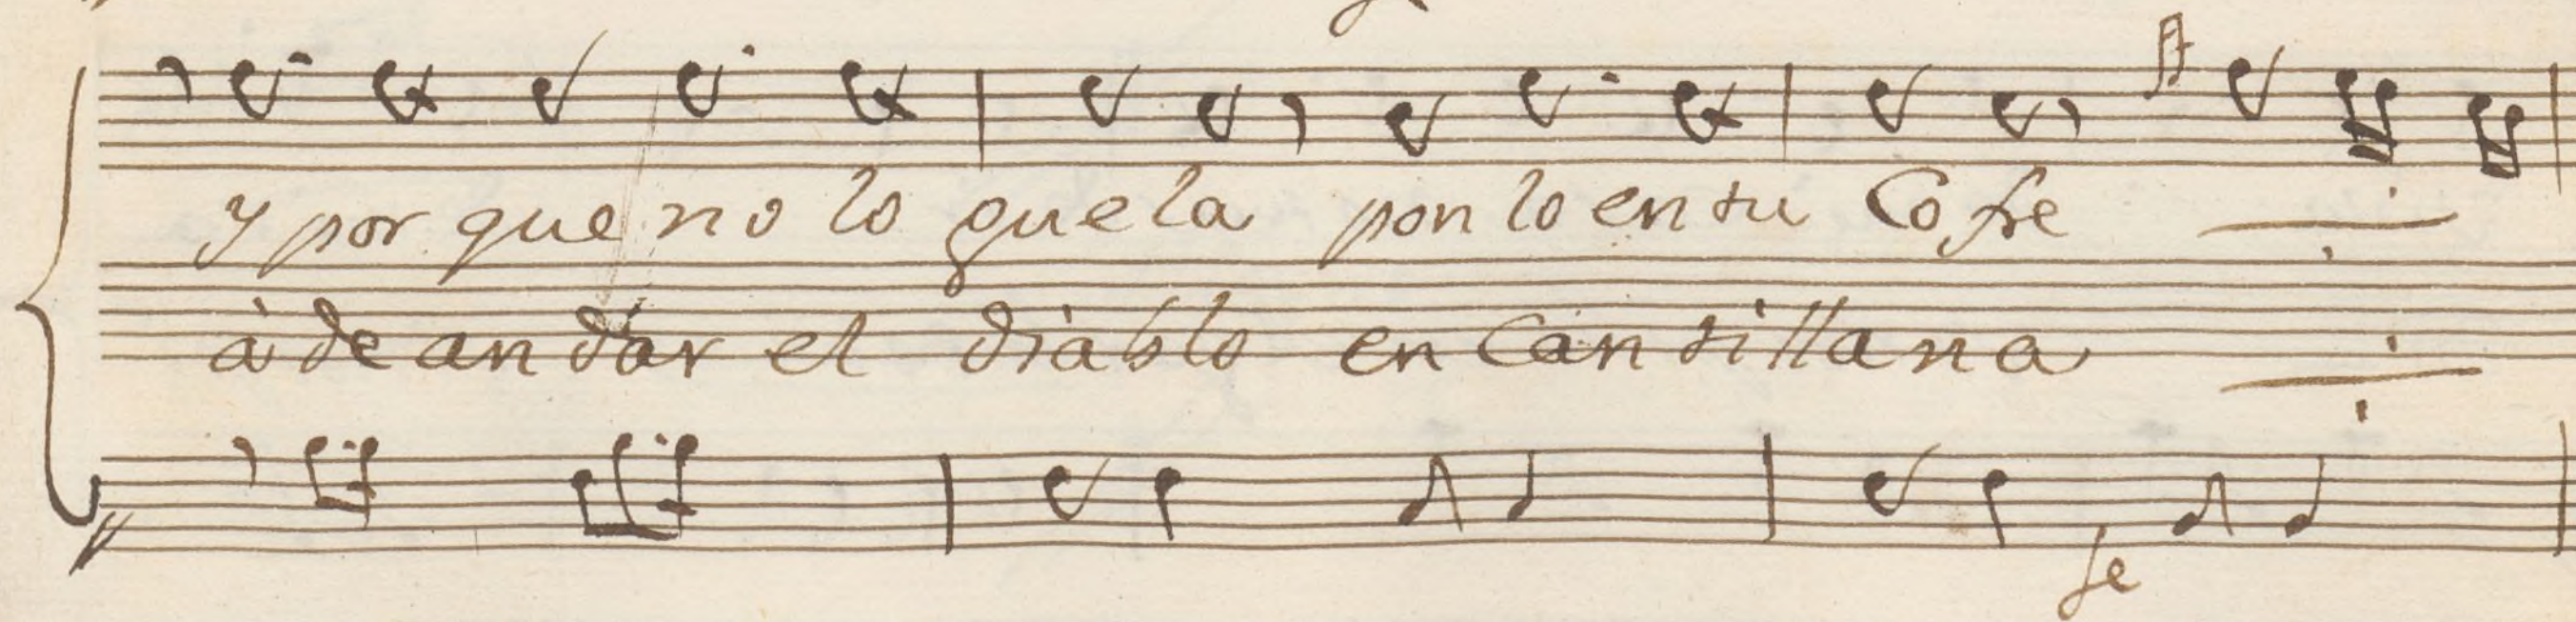 y por que no lo guela pon lo en tu Cofre
à de andar el diablo en Cantillana
fe